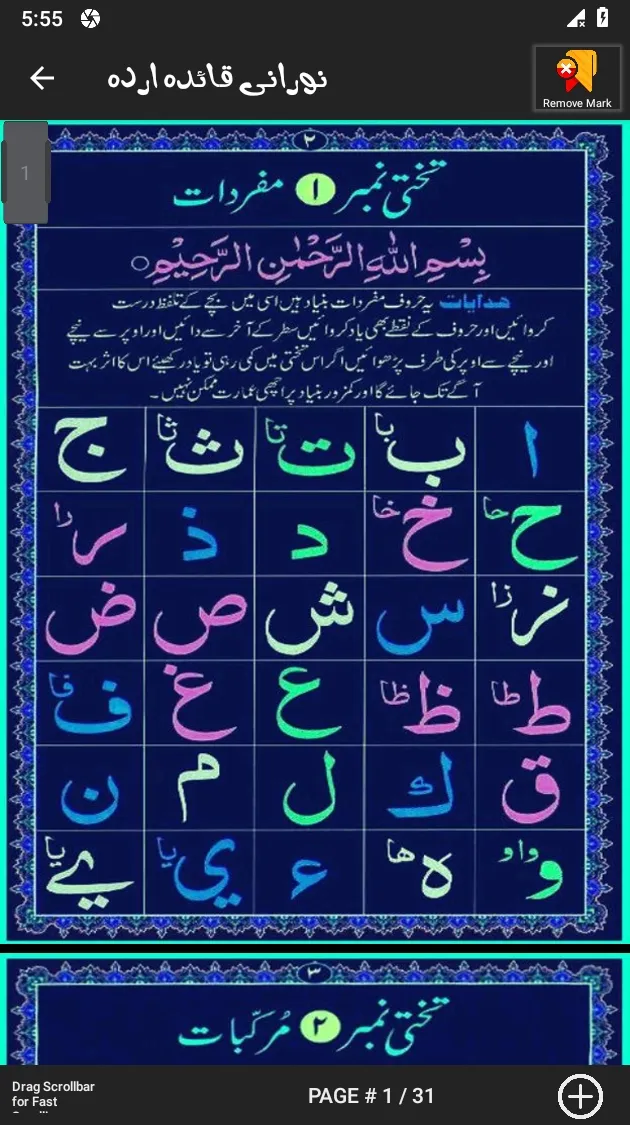 5:55
نورانی قائدہ اردہ
Remove Mark
1
٢
تختی نمبر ١ مفردات
بِسْمِ اللهِ الرَّحْمٰنِ الرَّحِيْمِ ○
ھدایات یہ حروف مفردات بنیاد ہیں اسی میں بچے کے تلفظ درست
کروائیں اور حروف کے نقطے بھی یاد کروائیں سطر کے آخر سے دائیں اور اوپر سے نیچے
اور نیچے سے اوپر کی طرف پڑھوائیں اگر اس تختی میں کمی رہی تو یاد رکھیئے اس کا اثر بہت
آگے تک جائے گا اور کمزور بنیاد پر اچھی عمارت ممکن نہیں۔
ا ب با ت تا ث ثا ج
ح حا خ خا د ذ ر را
ز زا س ش ص ض
ط طا ظ ظا ع غ ف فا
ق ك ل م ن
و واو ہ ھا ء ي یا ے یا
٣
تختی نمبر ٢ مُرکّبات
Drag Scrollbar
for Fast
PAGE # 1 / 31